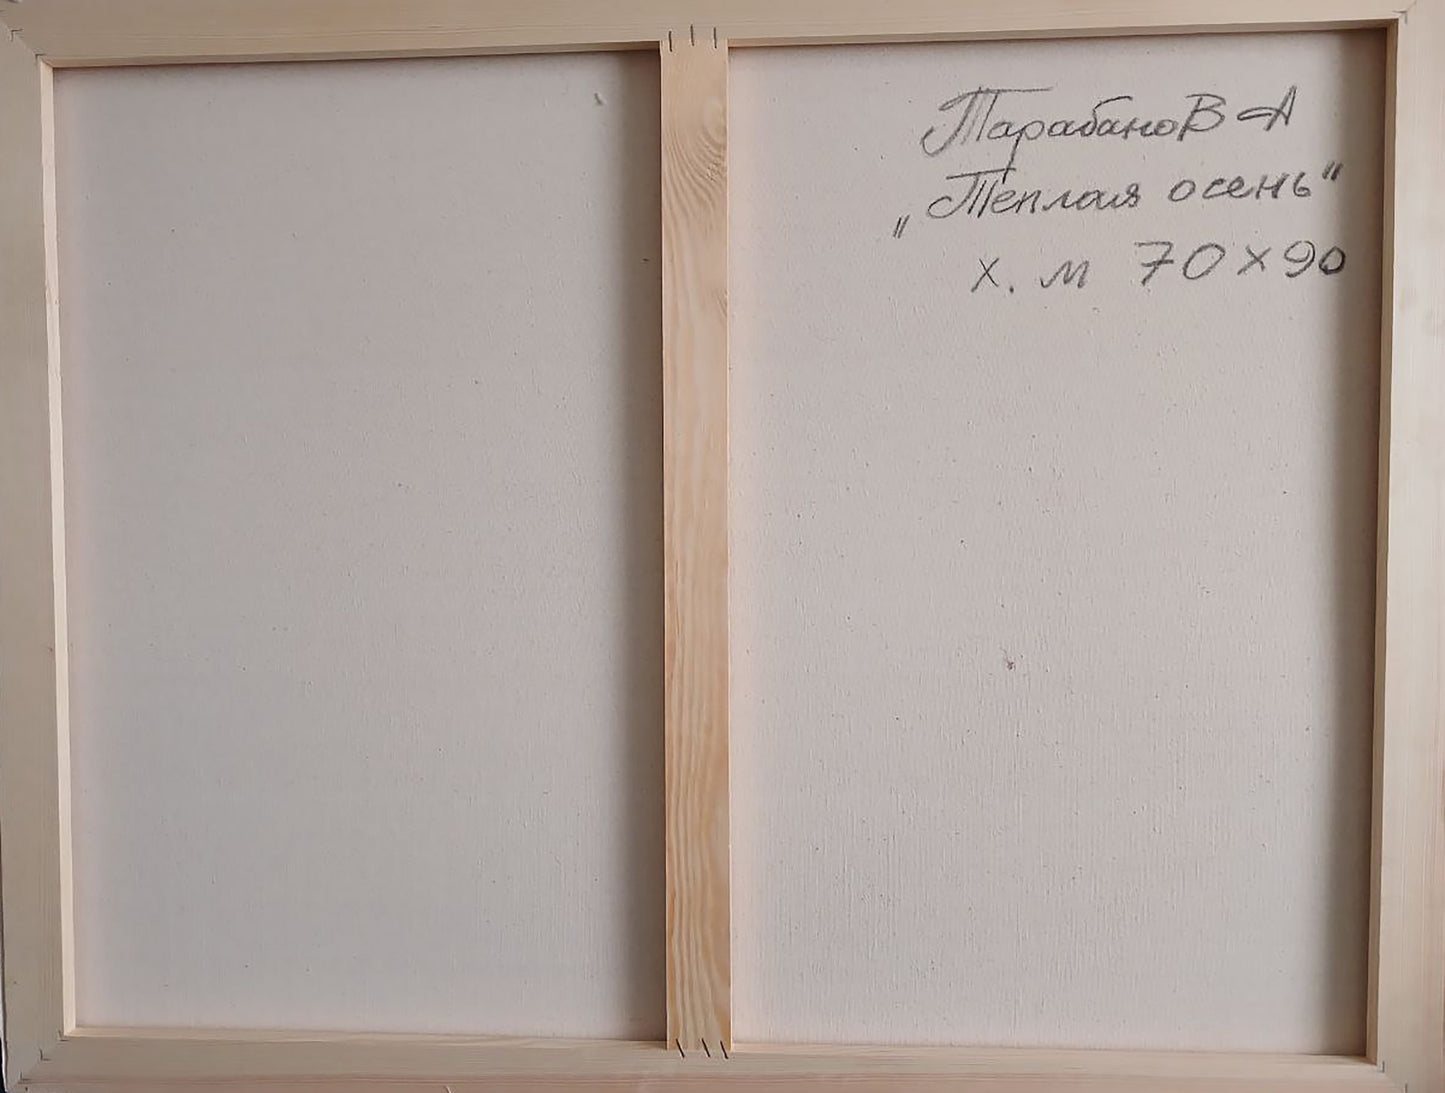 Тарабанов А
„Теплая осень“
х. м 70 х 90